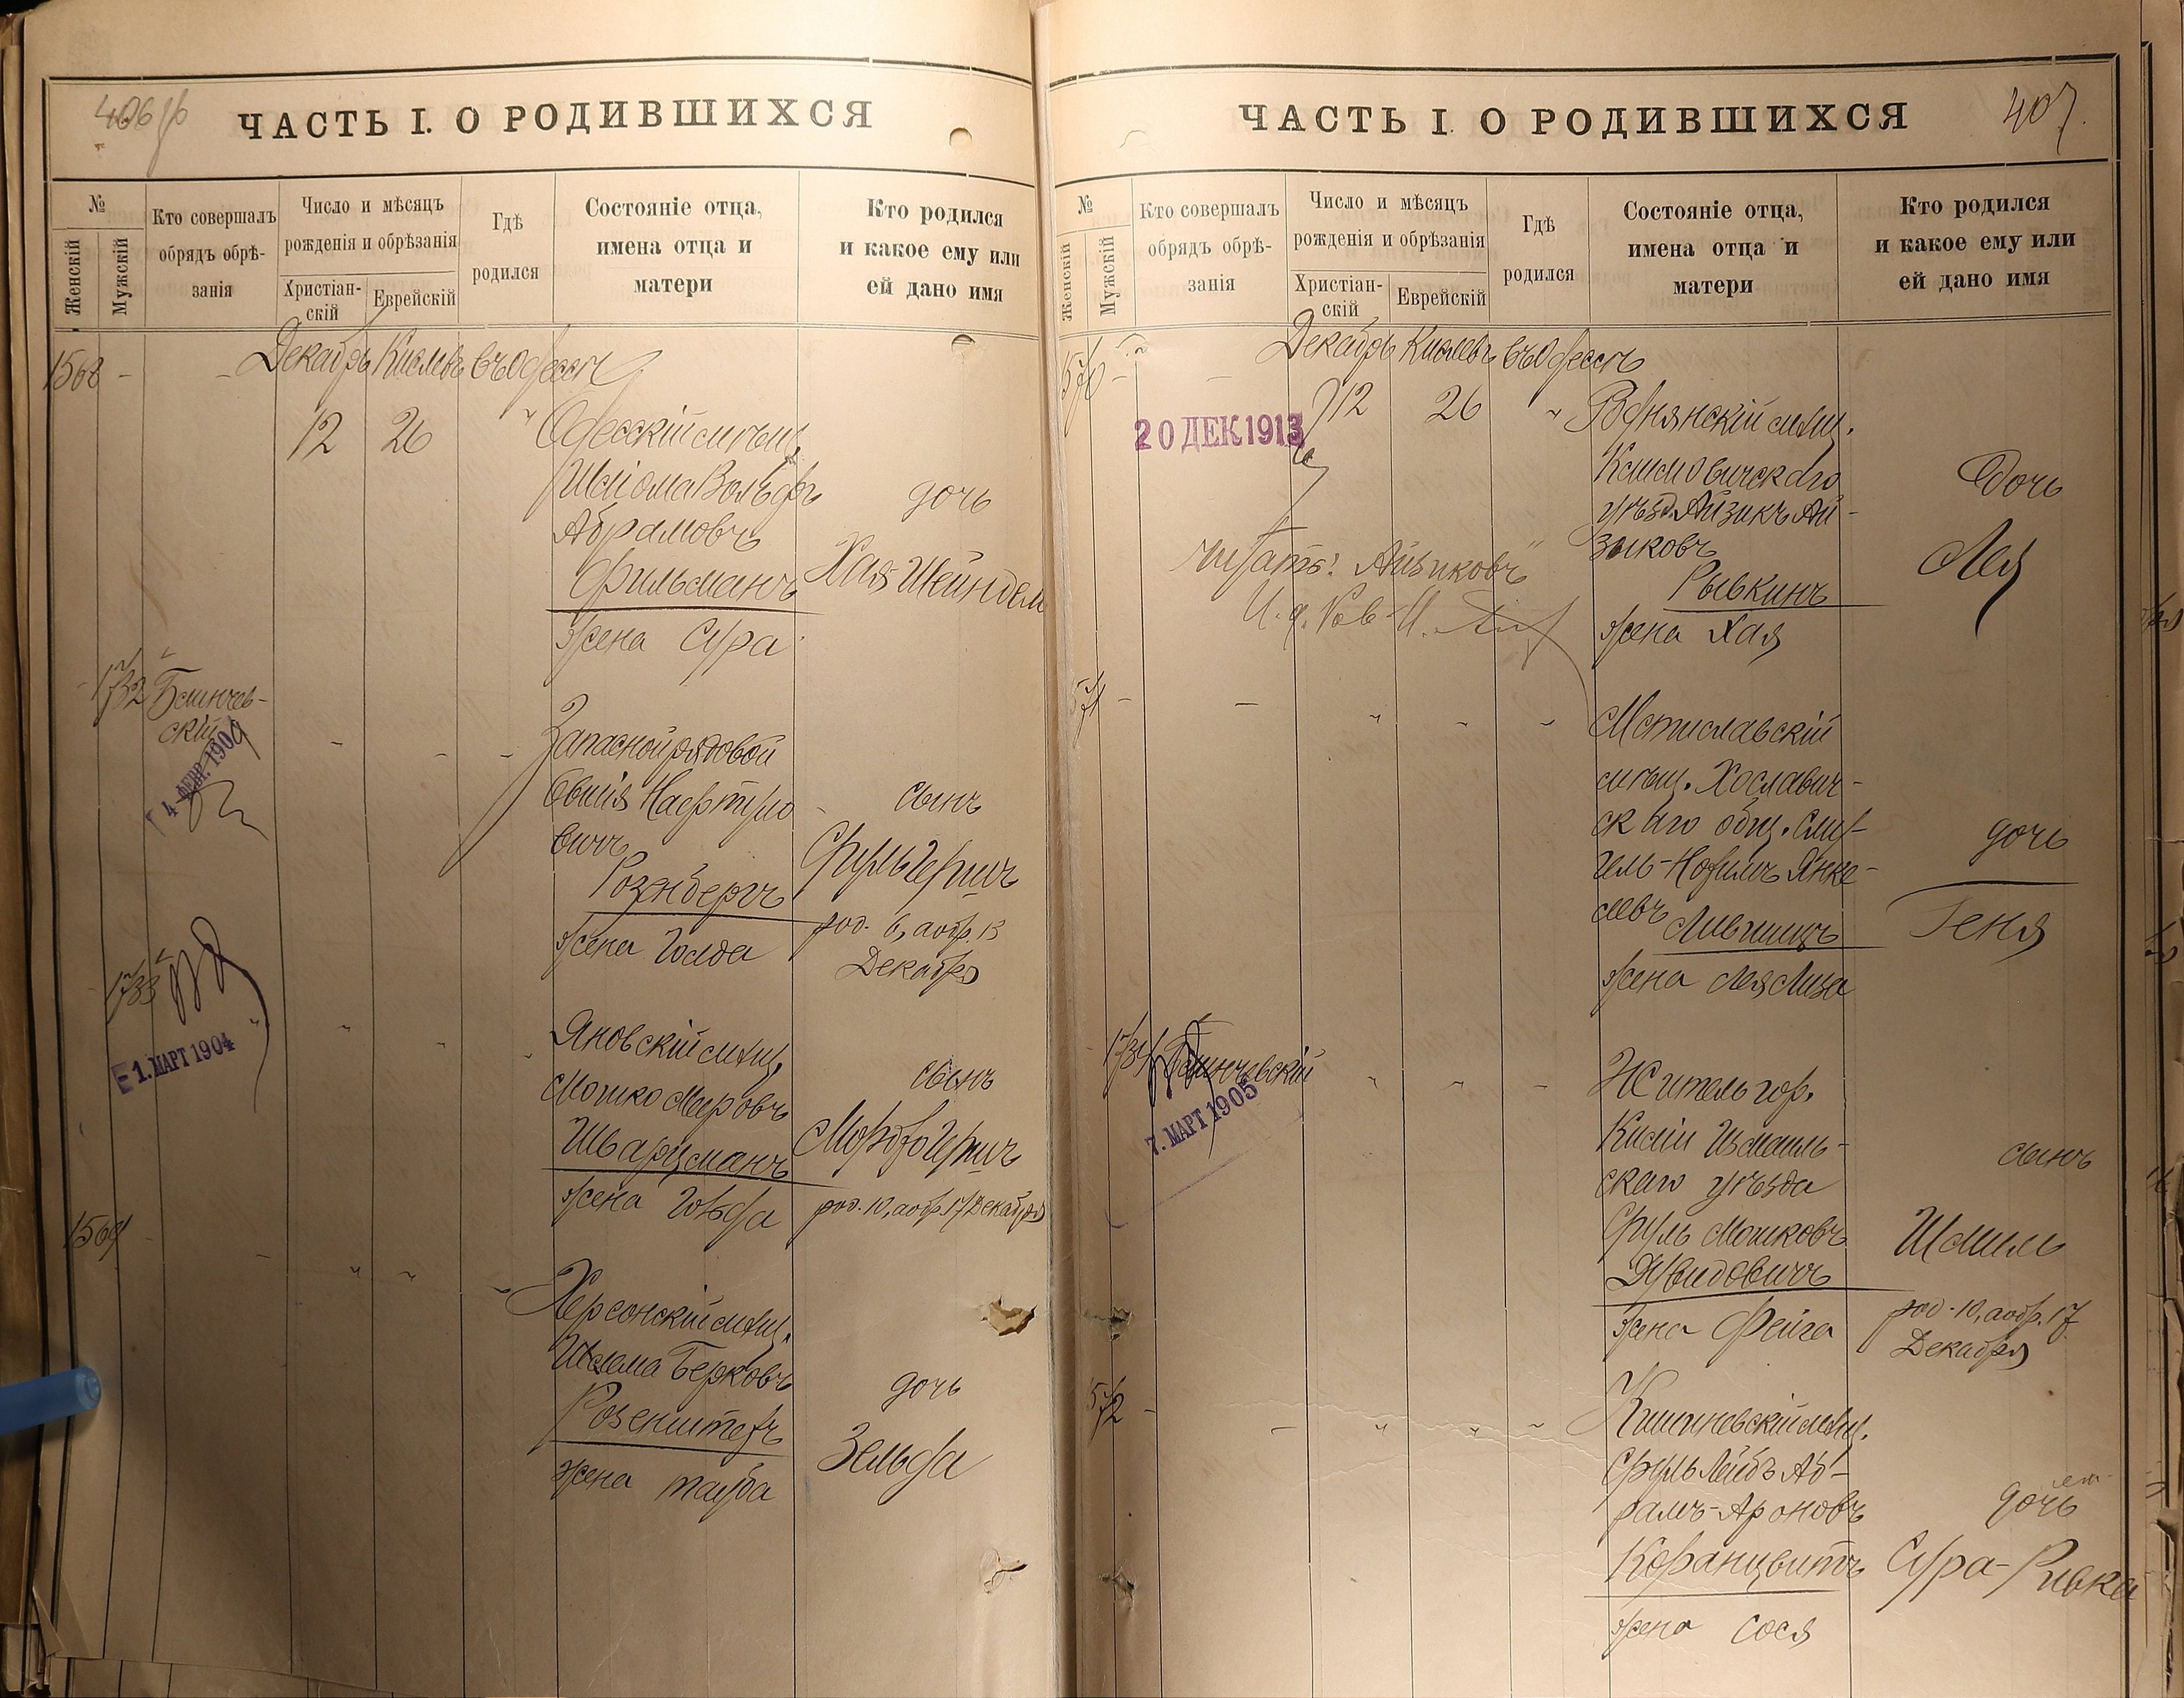 406 об
ЧАСТЬ I. О РОДИВШИХСЯ
№
Женскій
Мужскій
Кто совершалъ
обрядъ обрѣ-
занія
Число и мѣсяцъ
рожденія и обрѣзанія
Христіан-
скій
Еврейскій
Гдѣ
родился
Состояніе отца,
имена отца и
матери
Кто родился
и какое ему или
ей дано имя
Декабрь Кислевъ въ Одессѣ
1568 -
12 26 " Одесскій мѣщ.
Шлiома Вольфъ
Абрамовъ
Фильманъ
жена Сура
дочь
Хая Шейндель
1732 Блинчев-
скій
4 ФЕВР. 1904
Запасной рядовой
Овшія Нафтуло
вичъ
Розенбергъ
жена Голда
сынъ
Сруль Гершъ
род. 6, а обр. 13
Декабря
1733 "
1. МАРТ 1904
Яновскій мѣщ.
Мошко Мееровъ
Шварцманъ
жена Гольда
сынъ
Мордко Гершъ
род. 10, а обр. 17 Декабря
1569 -
Херсонскій мѣщ.
Шлема Берковъ
Розенштейнъ
жена Тауба
дочь
Зельда
407.
ЧАСТЬ I. О РОДИВШИХСЯ
№
Женскій
Мужскій
Кто совершалъ
обрядъ обрѣ-
занія
Число и мѣсяцъ
рожденія и обрѣзанія
Христіан-
скій
Еврейскій
Гдѣ
родился
Состояніе отца,
имена отца и
матери
Кто родился
и какое ему или
ей дано имя
Декабрь Кислевъ въ Одессѣ
570 -
20 ДЕК 1913
12 26 " Роднянскій мѣщ.
Климовичскаго
уѣзд. Айзикъ Ай-
зиковъ
Рывкинъ
жена Хая
Дочь
Лея
читать: Айзиковъ"
571 -
Мстиславскій
мѣщ. Хославич-
скаго общ. Шму-
ель-Нохимъ Янке-
левъ Лившицъ
жена Лея Лиза
дочь
Геня
1734 Блинчевскій
7. МАРТ 1905
Житель гор.
Киліи Измаиль-
скаго уѣзда
Сруль Мошковъ
Давидовичъ
жена Фейга
сынъ
Шмиль
род. 10, а обр. 17
Декабря
572 -
Кишиневскій мѣщ.
Сруль Лейбъ Аб-
рамъ-Ароновъ
Кофанцвитъ
жена Сося
дочь
Сура-Ривка